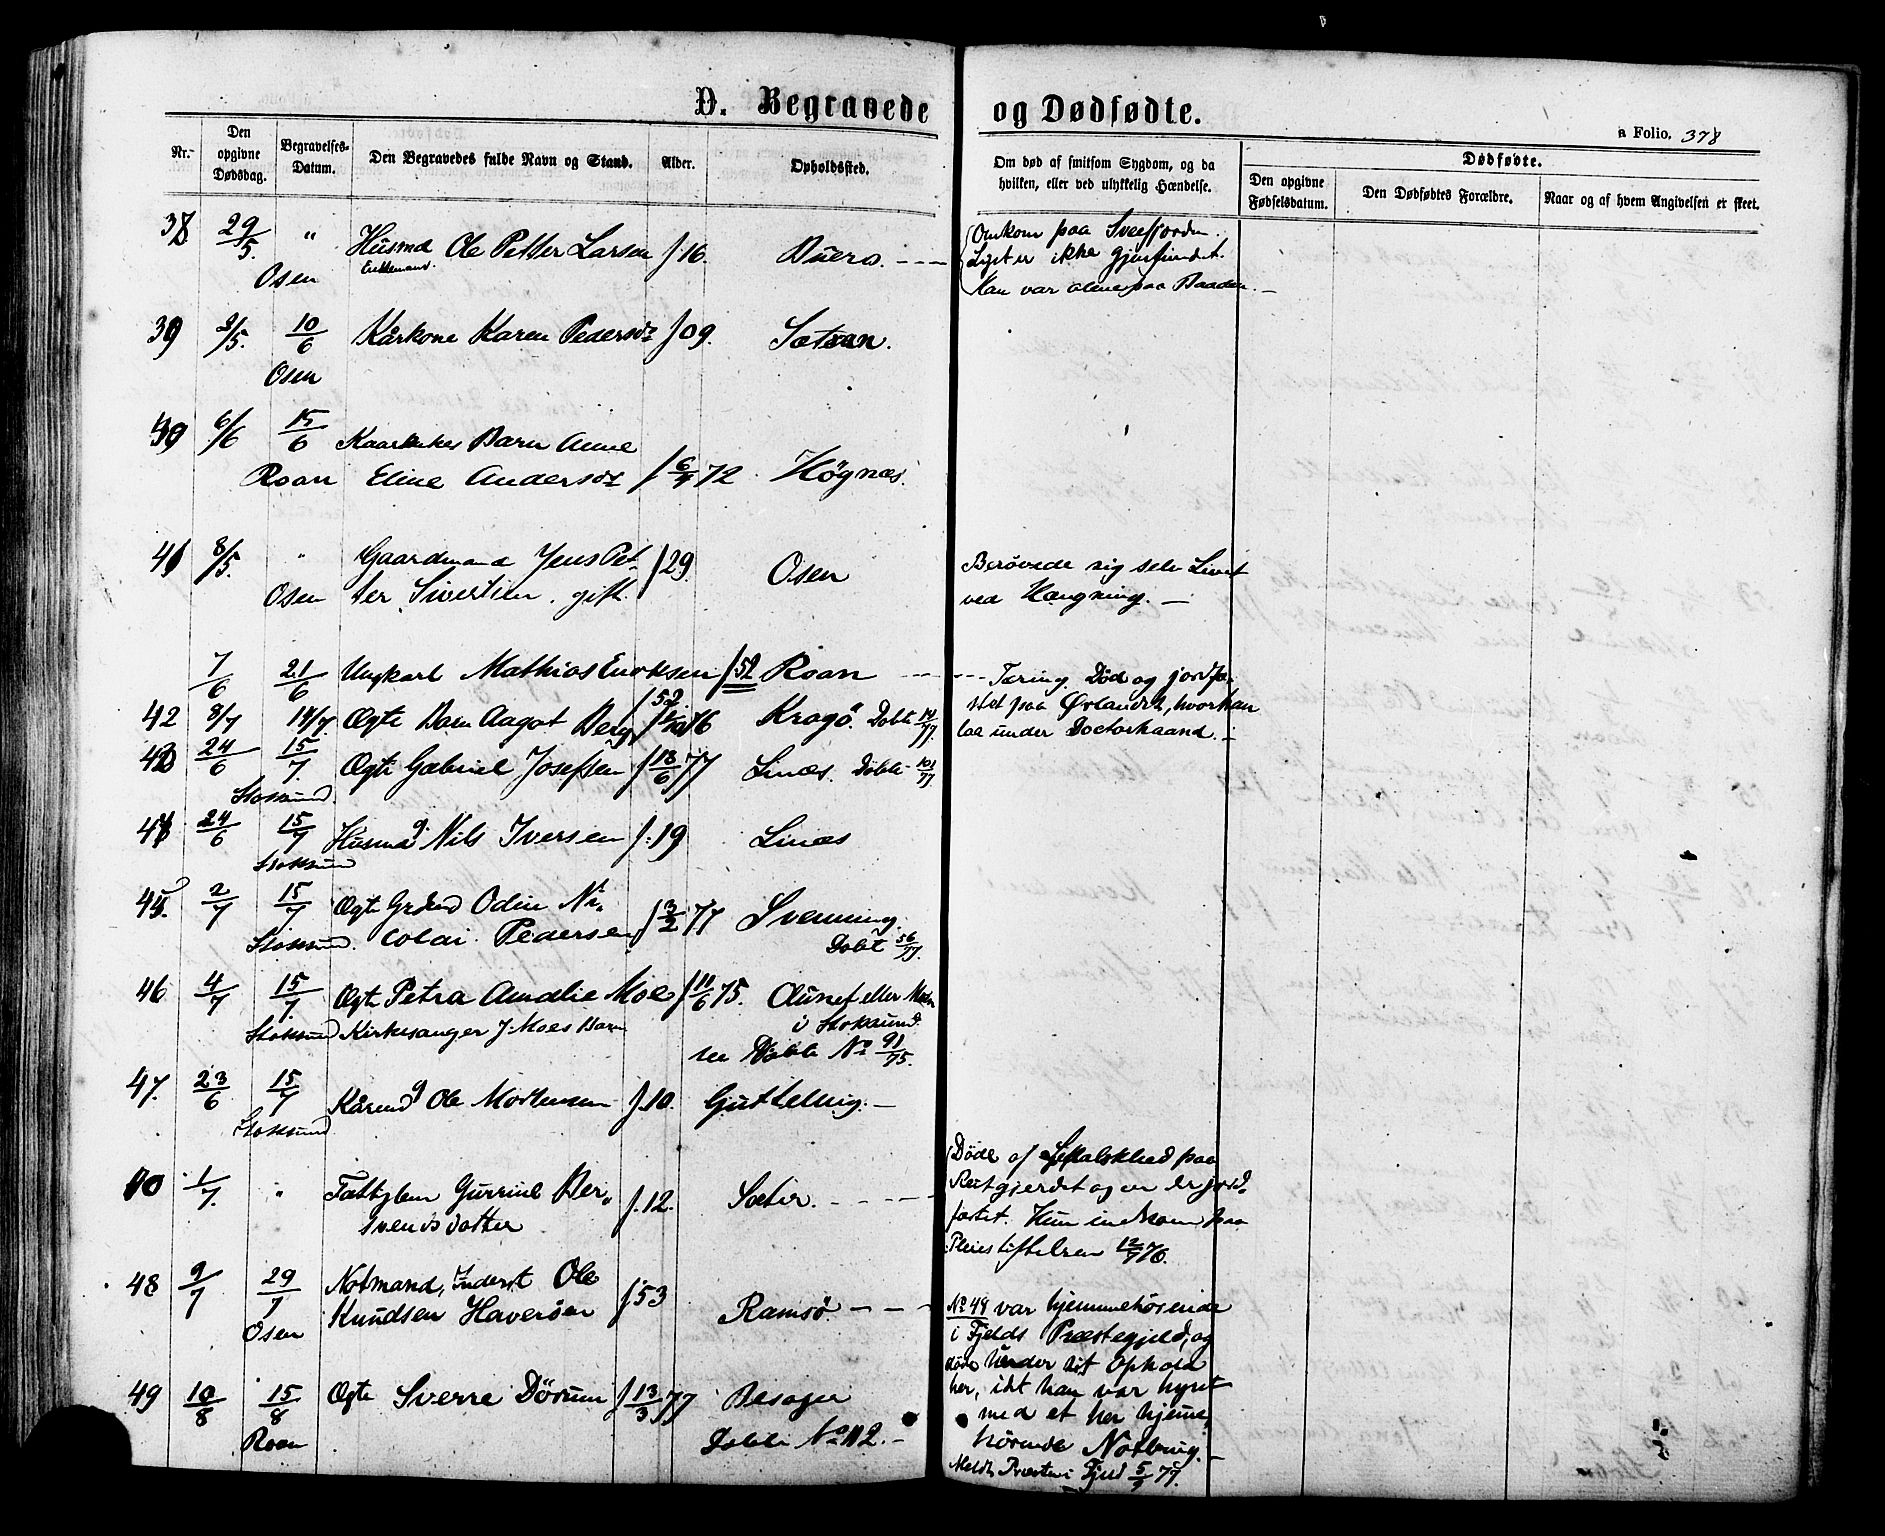 D. Begravede og Dødfødte.
a Folio. 378
Nr. Den opgivne Dødsdag. Begravelses-Datum. Den Begravedes fulde Navn og Stand. Alder. Opholdssted.
Om død af smitsom Sygdom, og da hvilken, eller ved ulykkelig Hændelse.
Dødfødte.
Den opgivne Fødselsdatum. Den Dødfødtes Forældre. Naar og af hvem Angivelsen er skeet.
38 29/5 " Husmd Ole Petter Larsen f. 16.
Osen Enkemand.
Omkom paa Svesfjorden.
Liget er ikke gjenfundet.
Han var alene paa Baaden. —
39 2/5. 10/6 Kårkone Karen Pedersdr f 09. Sætran.
Osen
6/6 15/6 Barn Anne
Roan Eline Andersdr f 6/4 72 Høgnæs.
41 8/5. " Gaardmand Jens Pet-
Osen ter Sivertsen. gift f 29. Osen
Berøvede sig selv Livet
ved Hængning. —
7/6 21/6 Ungkarl Mathias Enoksen f 52 Roan
Tæring. Død og jordfæ-
stet paa Ørlandet, hvor han
laa under Doctorhaand. —
42 8/7 14/7. Ægte Barn Aagot Berg Kragø. Dobte 14/77.
43 24/6 15/7. Ægte Gabriel Josefsen f 13/6 77 Linæs. Dobte 101/77.
Stoksund
24/6 15/7 Husmd g. Nils Iversen f. 19 Linæs
Stoksund
45. 2/7 15/7 Ægte Odin Ni-
Stoksund. colai Pedersen f 3/2 77 Svenning.
Dobte 56/77.
46 4/7 15/7. Ægte Petra Amalie Moe f 11/6 75. Aunet eller
Stoksund Kirkesanger J. Moes Barn i Stoksund.
se Dobte No 91/75.
47. 23/6 15/7 Kårmd g Ole Mortensen f. 10. Guttelvig. —
Stoksund
1/7. " Fattiglem Gurrine Ber-
svendsdatter f. 12. Sæter.
Døde af paa
Reitgjerdet og er der jord-
fæstet. Hun indkom paa
Pleiestiftelsen 12/7 76.
48 9/7 29/7 Notmand, Inderst Ole
Osen Knudsen Haverøen f. 53 Ramsø.
No 48 var hjemmehørende
i Fjelds Præstegjeld, og
døde under sit Ophold
her, idet han var hyret
med et her hjemme-
hørende Notbrug. —
Meldt Præsten i Fjeld 5/9 77.
49 10/8 15/8 Ægte Sverre Dørum f 13/3 77 Besager
Roan Dobte No 112. —